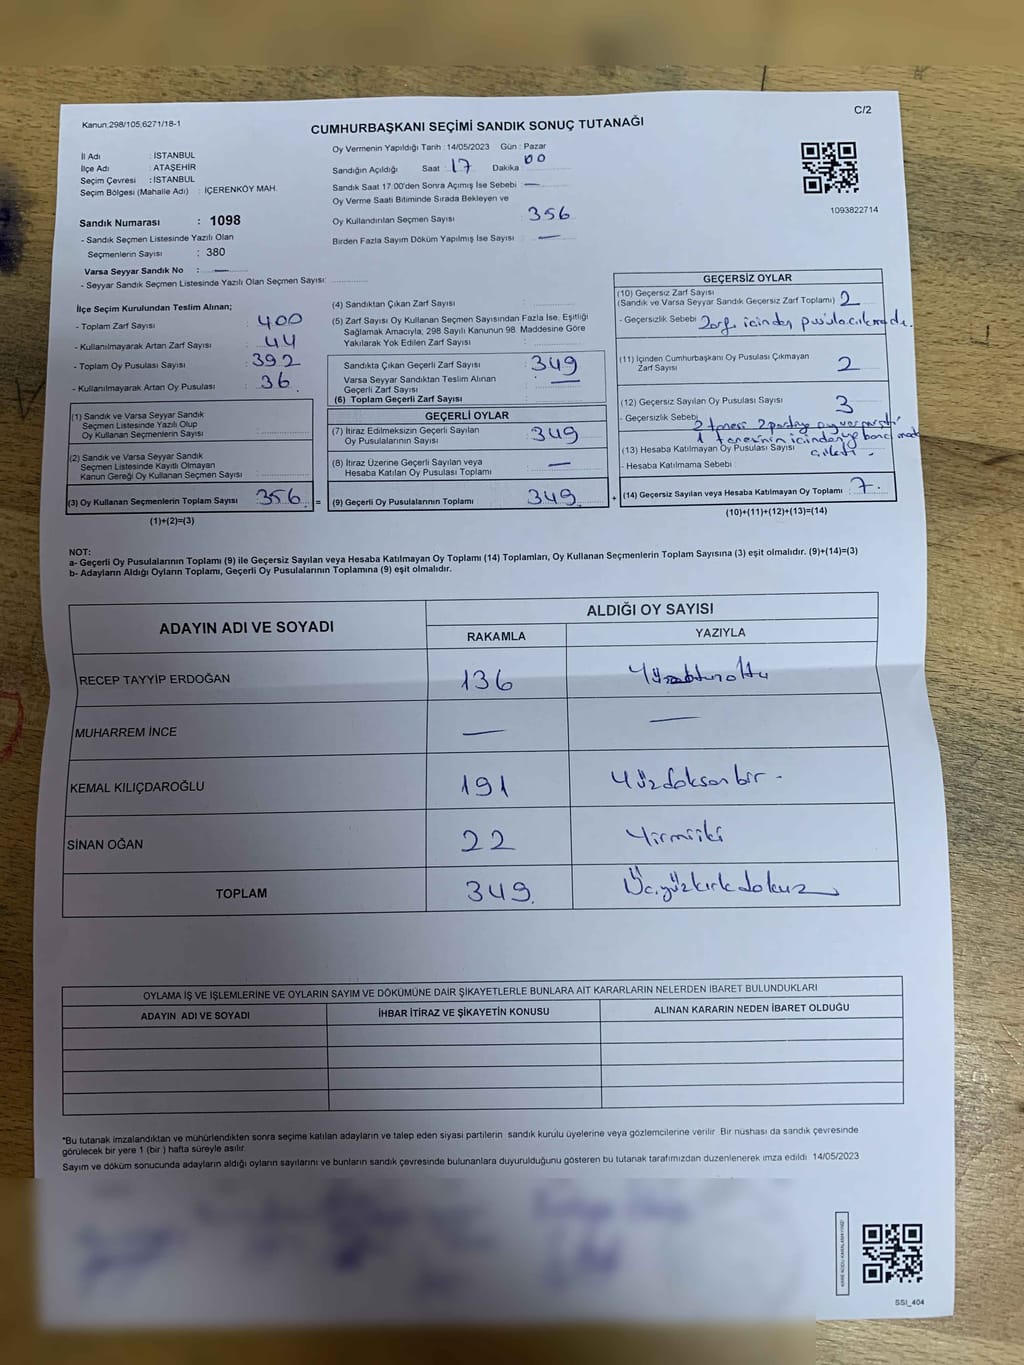 Kanun 298/105,6271/18-1
C/2
CUMHURBAŞKANI SEÇİMİ SANDIK SONUÇ TUTANAĞI
İl Adı : İSTANBUL
İlçe Adı : ATAŞEHİR
Seçim Çevresi : İSTANBUL
Seçim Bölgesi (Mahalle Adı) : İÇERENKÖY MAH.
Sandık Numarası : 1098
- Sandık Seçmen Listesinde Yazılı Olan
Seçmenlerin Sayısı : 380
Varsa Seyyar Sandık No : —
- Seyyar Sandık Seçmen Listesinde Yazılı Olan Seçmen Sayısı:
Oy Vermenin Yapıldığı Tarih : 14/05/2023 Gün : Pazar
Sandığın Açıldığı Saat : 17 Dakika : 00
Sandık Saat 17:00'den Sonra Açımış İse Sebebi : —
Oy Verme Saati Bitiminde Sırada Bekleyen ve
Oy Kullandırılan Seçmen Sayısı : 356
Birden Fazla Sayım Döküm Yapılmış İse Sayısı : —
1093822714
İlçe Seçim Kurulundan Teslim Alınan;
- Toplam Zarf Sayısı : 400
- Kullanılmayarak Artan Zarf Sayısı : 44
- Toplam Oy Pusulası Sayısı : 392
- Kullanılmayarak Artan Oy Pusulası : 36.
(1) Sandık ve Varsa Seyyar Sandık
Seçmen Listesinde Yazılı Olup
Oy Kullanan Seçmenlerin Sayısı :
(2) Sandık ve Varsa Seyyar Sandık
Seçmen Listesinde Kayıtlı Olmayan
Kanun Gereği Oy Kullanan Seçmen Sayısı :
(3) Oy Kullanan Seçmenlerin Toplam Sayısı : 356 =
(1)+(2)=(3)
(4) Sandıktan Çıkan Zarf Sayısı :
(5) Zarf Sayısı Oy Kullanan Seçmen Sayısından Fazla İse, Eşitliği
Sağlamak Amacıyla, 298 Sayılı Kanunun 98. Maddesine Göre
Yakılarak Yok Edilen Zarf Sayısı :
Sandıkta Çıkan Geçerli Zarf Sayısı : 349
Varsa Seyyar Sandıktan Teslim Alınan
Geçerli Zarf Sayısı : —
(6) Toplam Geçerli Zarf Sayısı :
GEÇERLİ OYLAR
(7) İtiraz Edilmeksizin Geçerli Sayılan
Oy Pusulalarının Sayısı : 349
(8) İtiraz Üzerine Geçerli Sayılan veya
Hesaba Katılan Oy Pusulası Toplamı : —
(9) Geçerli Oy Pusulalarının Toplamı : 349 +
GEÇERSİZ OYLAR
(10) Geçersiz Zarf Sayısı
(Sandık ve Varsa Seyyar Sandık Geçersiz Zarf Toplamı) : 2
- Geçersizlik Sebebi : Zarf içinden pusula çıkmadı.
(11) İçinden Cumhurbaşkanı Oy Pusulası Çıkmayan
Zarf Sayısı : 2
(12) Geçersiz Sayılan Oy Pusulası Sayısı : 3
- Geçersizlik Sebebi : 2 tanesi 2 partiye oy
1
(13) Hesaba Katılmayan Oy Pusulası Sayısı :
- Hesaba Katılmama Sebebi :
(14) Geçersiz Sayılan veya Hesaba Katılmayan Oy Toplamı : 7.
(10)+(11)+(12)+(13)=(14)
NOT:
a- Geçerli Oy Pusulalarının Toplamı (9) ile Geçersiz Sayılan veya Hesaba Katılmayan Oy Toplamı (14) Toplamları, Oy Kullanan Seçmenlerin Toplam Sayısına (3) eşit olmalıdır. (9)+(14)=(3)
b- Adayların Aldığı Oyların Toplamı, Geçerli Oy Pusulalarının Toplamına (9) eşit olmalıdır.
ADAYIN ADI VE SOYADI ALDIĞI OY SAYISI
RAKAMLA YAZIYLA
RECEP TAYYİP ERDOĞAN 136 Yüzotuzaltı
MUHARREM İNCE — —
KEMAL KILIÇDAROĞLU 191 Yüzdoksanbir -
SİNAN OĞAN 22 Yirmiiki
TOPLAM 349. Üçyüzkırkdokuz
OYLAMA İŞ VE İŞLEMLERİNE VE OYLARIN SAYIM VE DÖKÜMÜNE DAİR ŞİKAYETLERLE BUNLARA AİT KARARLARIN NELERDEN İBARET BULUNDUKLARI
ADAYIN ADI VE SOYADI İHBAR İTİRAZ VE ŞİKAYETİN KONUSU ALINAN KARARIN NEDEN İBARET OLDUĞU
*Bu tutanak imzalandıktan ve mühürlendikten sonra seçime katılan adayların ve talep eden siyasi partilerin sandık kurulu üyelerine veya gözlemcilerine verilir. Bir nüshası da sandık çevresinde
görülecek bir yere 1 (bir ) hafta süreyle asılır.
Sayım ve döküm sonucunda adayların aldığı oyların sayılarını ve bunların sandık çevresinde bulunanlara duyurulduğunu gösteren bu tutanak tarafımızdan düzenlenerek imza edildi. 14/05/2023
SSI_404